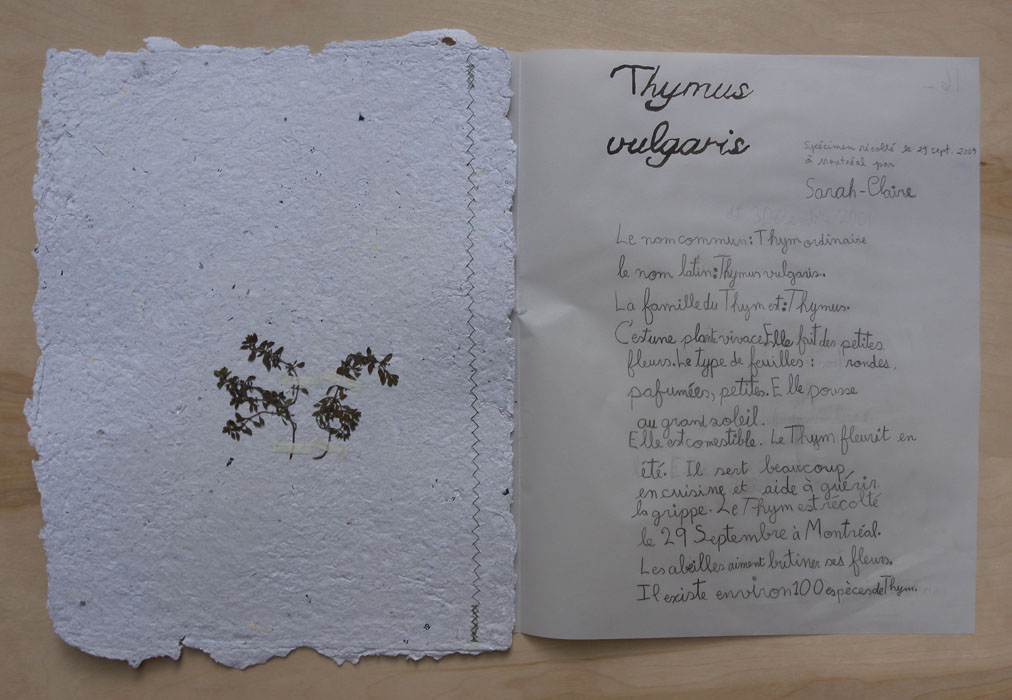 Thymus
vulgaris
Spécimen récolté le 29 sept. 2009
à Montréal par
Sarah-Claire
Le nom commun: Thym ordinaire
le nom latin: Thymus vulgaris.
La famille du Thym est: Thymus.
C'est une plant vivace Elle fait des petites
fleurs. Le type de feuilles : rondes,
pafumées, petites. Elle pousse
au grand soleil.
Elle est comestible. Le Thym fleurit en
été. Il sert beaucoup
en cuisine et aide à guérir
la grippe. Le Thym est récolté
le 29 Septembre à Montréal.
Les abeilles aiment butiner ses fleurs.
Il existe environ 100 espèces de Thym.